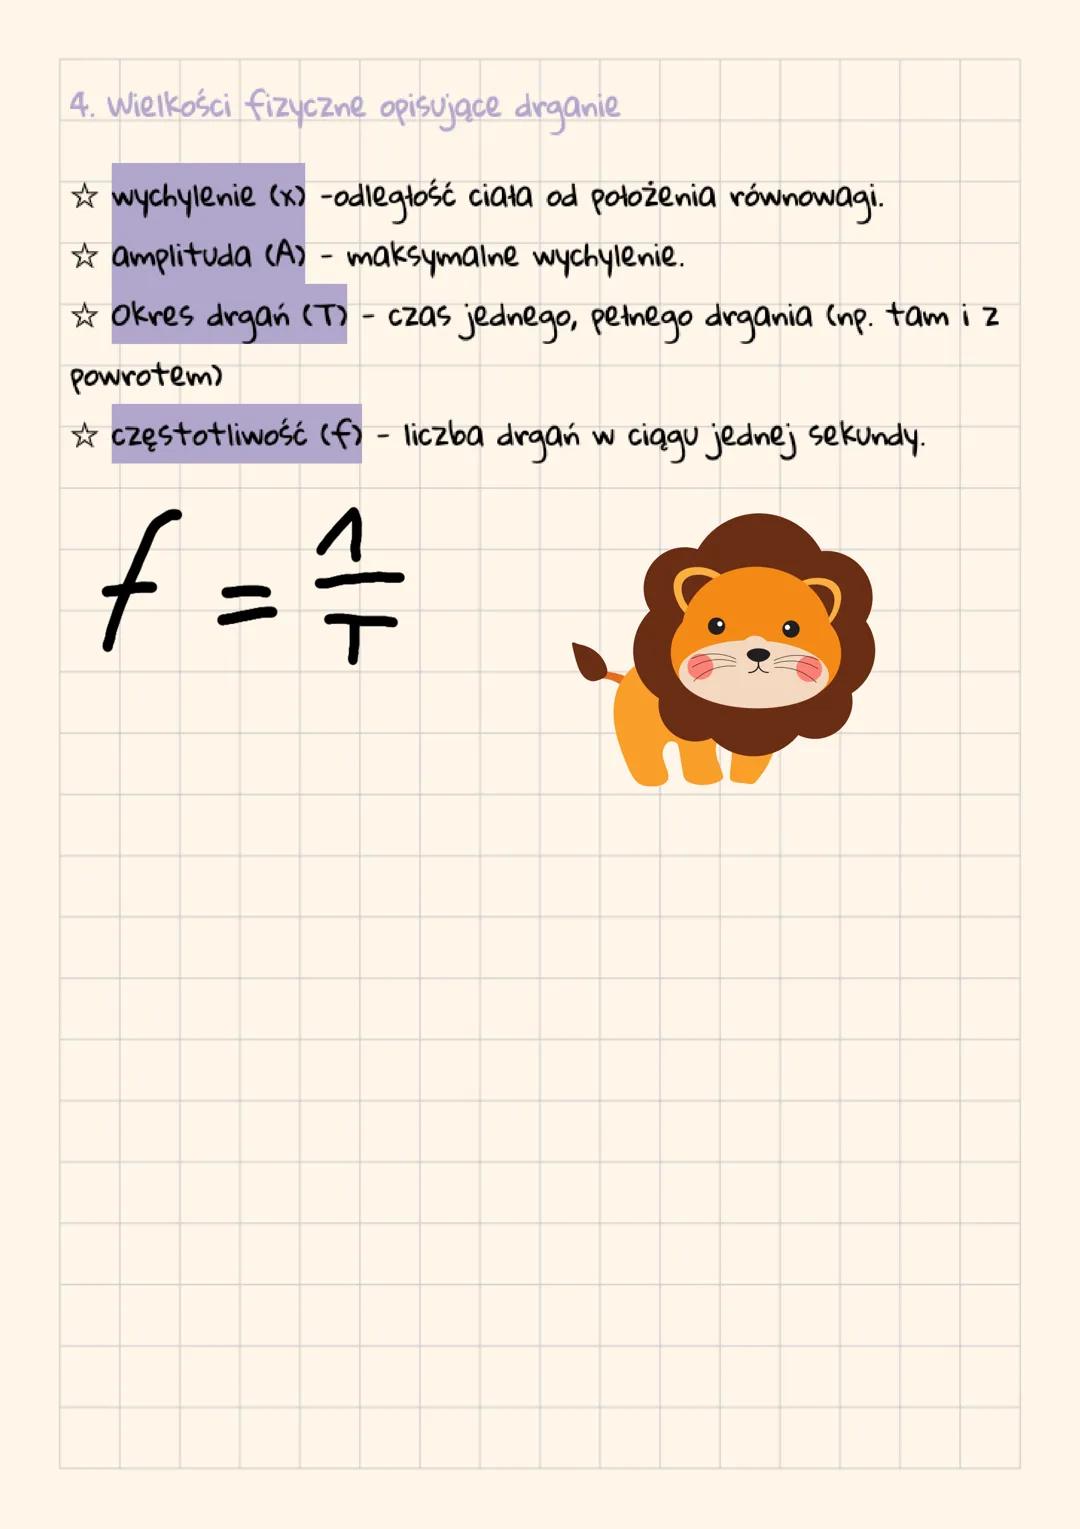 4. Wielkości fizyczne opisujące drganie
☆ wychylenie (x) -odległość ciała od położenia równowagi.
☆ amplituda (A) - maksymalne wychylenie.
☆ Okres drgań (T) - czas jednego, pełnego drgania (np. tam i z
powrotem)
☆ częstotliwość (f) - liczba drgań w ciągu jednej sekundy.
f = 1/T